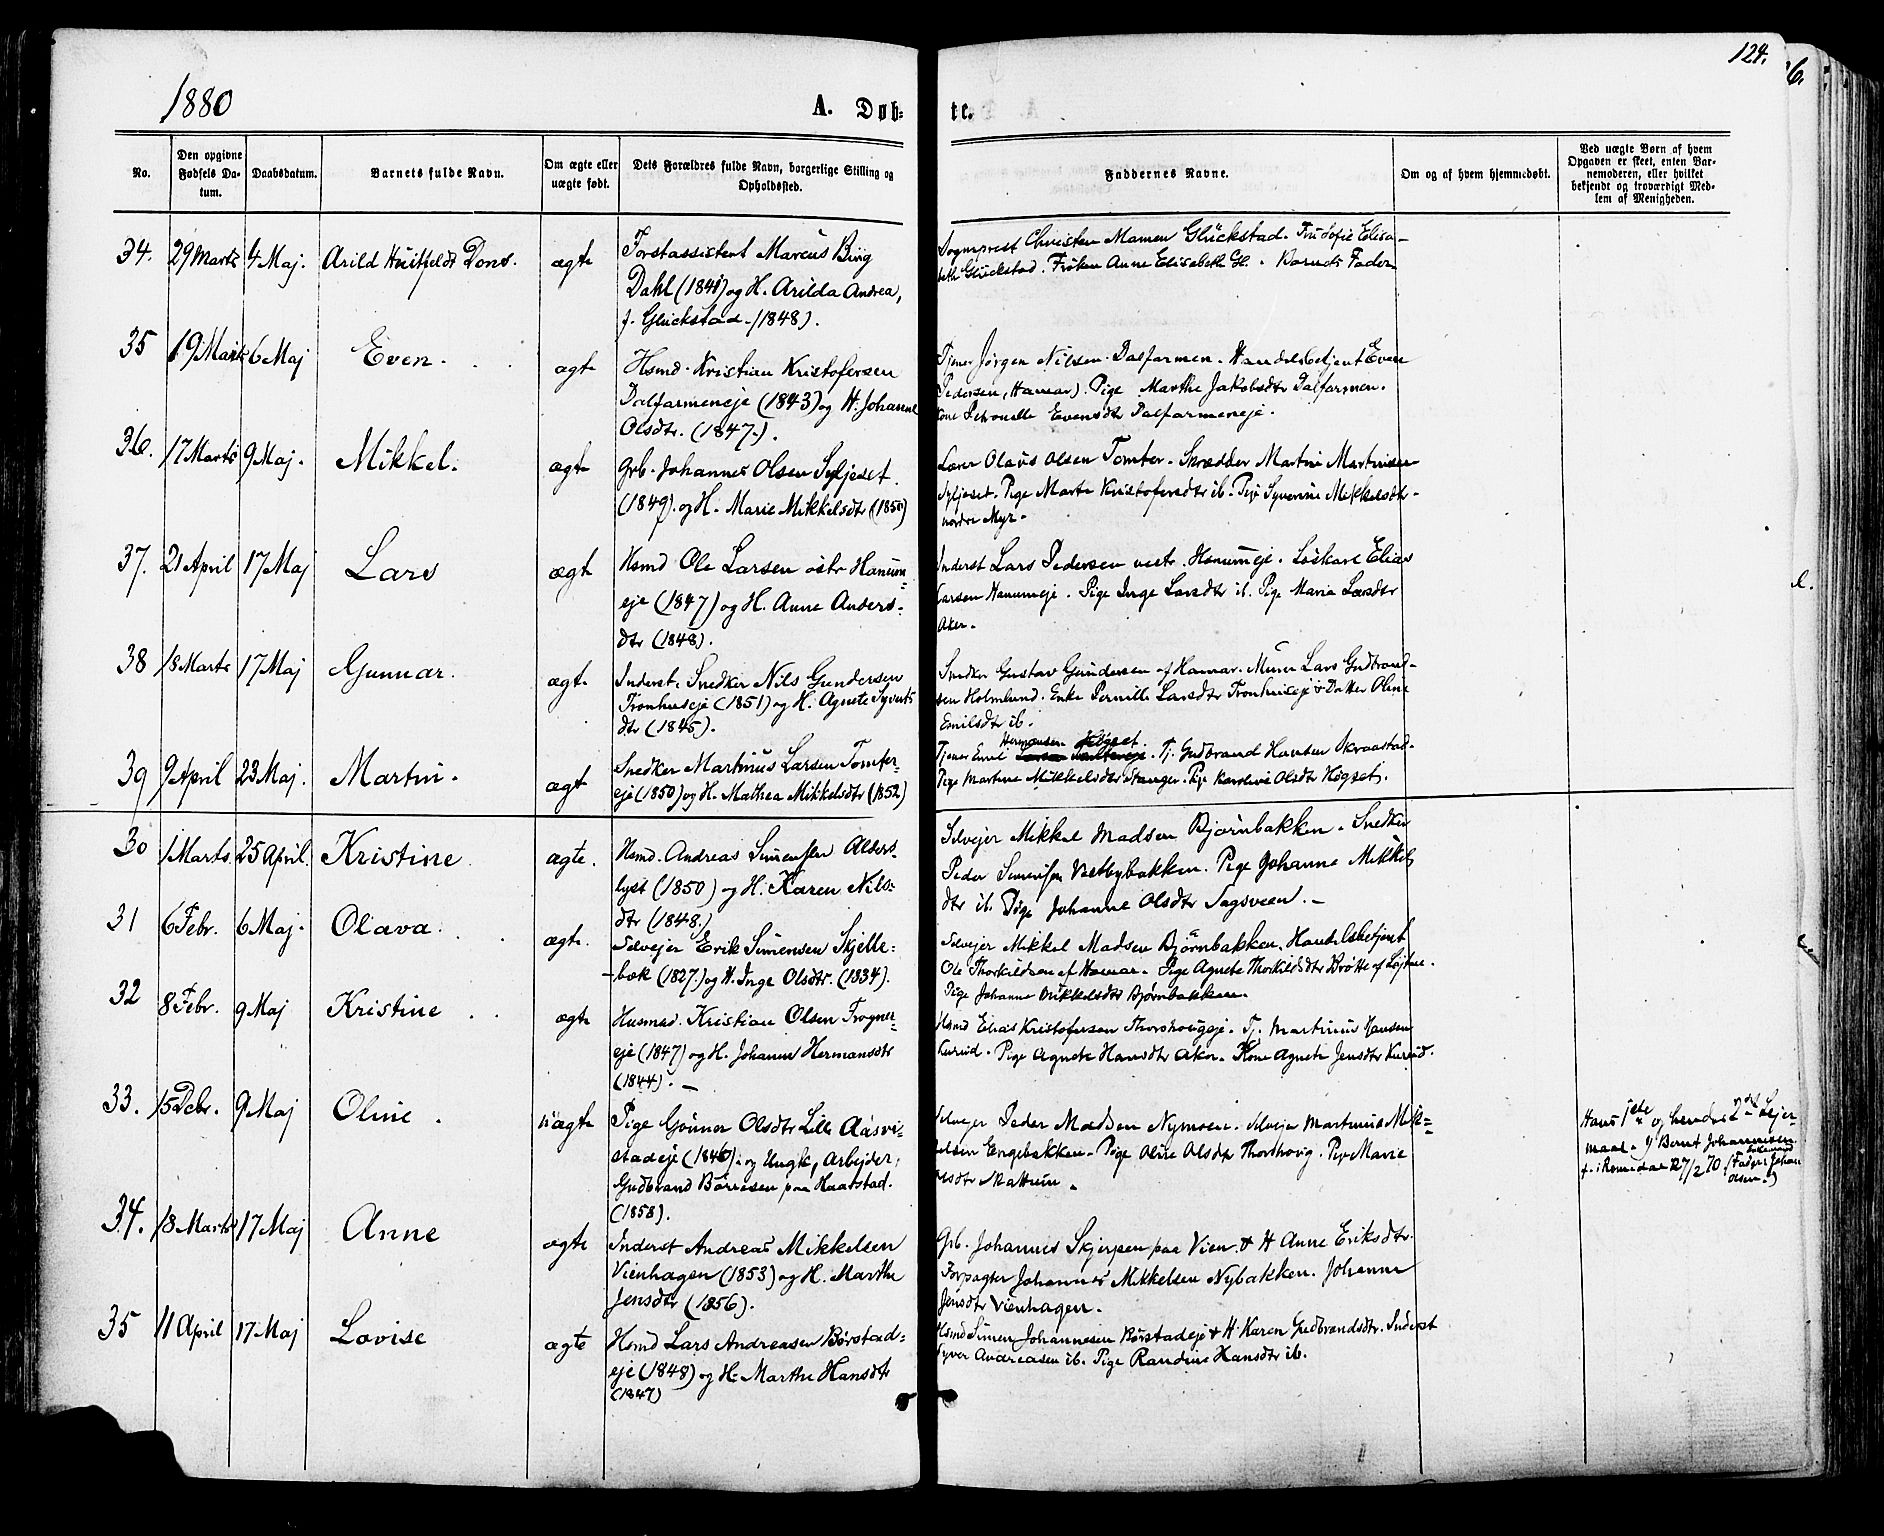 124.
1880
A. Døb= te.
No.
Den opgivne Fødsels Da= tum.
Daabsdatum.
Barnets fulde Navn.
Om ægte eller uægte født.
Dets Forældres fulde Navn, borgerlige Stilling og Opholdssted.
Faddernes Navne.
Om og af hvem hjemmedøbt.
Ved uægte Børn af hvem Opgaven er skeet, enten Bar= nemoderen, eller hvilket bekjendt og troværdigt Med= lem af Menigheden.
34. 29 Marts 4 Maj. Arild Huitfeldt Dons. ægte
Forstassistent Marcus Bing
Dahl (1841) og H. Arilda Andrea,
f. Glückstad (1848).
Sogneprest Christen Mamen Glückstad. Fru Sofie Elisa-
beth Glückstad. Frøken Anne Elisabeth Gl. Barnets Fader
35 19 Marts 6 Maj Even. ægte
Hsmd. Kristian Kristofersen
Dalfarmeneje (1843) og H. Johanne
Olsdtr. (1847).
Tjener Jørgen Nilsen Dalfarmen. Handelsbetjent Even
Pedersen, Hamar. Pige Marthe Jakobsdtr Dalfarmen.
Kone Petronelle Evensdtr Dalfarmeneje.
36. 17 Marts 9 Maj. Mikkel. ægte
Grb. Johannes Olsen Syljeset.
(1849) og H. Marie Mikkelsdtr (1850)
Lærer Olaus Olsen Tomter. Skrædder Martin Martinsen
Syljeset. Pige Marte Kristofersdtr ib. Pige Syverine Mikkelsdtr
nordre Myr.
37. 21 April 17 Maj Lars ægte
Hsmd Ole Larsen østr Hanum=
eje (1847) og H. Anne Anders=
dtr (1848).
Inderst Lars Pedersen vestr. Hanumeje. Løskarl Elias
Larsen Hanumeje. Pige Inge Larsdtr ib. Pige Marie Larsdtr
Aker.
38 18 Marts 17 Maj Gunnar. ægte
Inderst, Snedker Nils Gundersen
Tronhuseje (1851) og H. Agnete Syverts
dtr (1845).
Snedker Gustav Gundersen af Hamar. Murer Lars Gudbrand-
sen Holmlund. Enke Pernille Larsdtr Tronhuseje & Datter Oline
Emilsdtr ib.
39 9 April 23 Maj. Martin. ægte
Snedker Martinus Larsen Tomter=
eje (1850) og H. Mathea Mikkelsdtr (1852)
Hermansen Høgset
Tjener Emil Tj. Gudbrand Hansen Skraastad.
Pige Martine Mikkelsdtr Stanger. Pige Karoline Olsdtr Høgset.
30 1 Marts 25 April. Kristine ægte.
Hsmd. Andreas Simensen Alders=
lyst (1850) og H. Karen Nils=
dtr (1848)
Selvejer Mikkel Madsen Bjørnbakken. Snedker
Peder Simensen Vestbybakken. Pige Johanne Mikkels
dtr ib. Pige Johanne Olsdtr Sagsveen.
31 6 Febr. 6 Maj. Olava. ægte.
Selvejer Erik Simensen Skjelle=
bæk (1827.) og H. Inge Olsdtr. (1834).
Selvejer Mikkel Madsen Bjørnbakken, Handelsbetjent
Ole Thorkildsen af Hamar. Pige Agnete Thorkildsdtr Brøtte af Løjten.
Pige Johanne Mikkelsdtr Bjørnbakken.
32 8 Febr. 9 Maj Kristine ægte
Husmd. Kristian Olsen Frogner=
eje (1847) og H. Johanne Hermansdtr
(1844).
Hsmd Elias Kristofersen Thorshougeje. Tj. Martinius Hansen
Kurud. Pige Agnete Hansdtr Aker. Kone Agnete Jensdtr Kurud.
33. 15 Febr. 9 Maj Oline. uægte
Pige Gønner Olsdtr Lille Aasvi=
stadeje (1846) og Ungk, Arbejder,
Gudbrand Børresen paa Haakstad.
(1858).
Selvejer Peder Madsen Nymoen. Selvejer Martinus Mik=
kelsen Engebakken. Pige Oline Olsdtr Thorshoug. Pige Marie
Olsdtr Mattrum.
Hans 1ste og hendes 2det Lejer-
maal. Bernt Johannesen
f. i Romedal 27/2 70 (Fader: Johan Olsen.)
34. 18 Marts 17 Maj Anne ægte
Inderst Andreas Mikkelsen
Vienhagen (1853) og H. Marthe
Jensdtr (1856).
Grb. Johannes Skjerpen paa Vien & H Anne Eriksdtr.
Forpagter Johannes Mikkelsen Nybakken. Johanne
Jensdtr Vienhagen.
35 11 April 17 Maj Lovise ægte
Hsmd Lars Andreasen Børstad=
eje (1848) og H. Marthe Hansdtr
(1847)
Hsmd Simen Johannesen Børstadeje & H. Karen Gudbrandsdtr. Inderst
Syver Andreasen ib. Pige Randine Hansdtr ib.